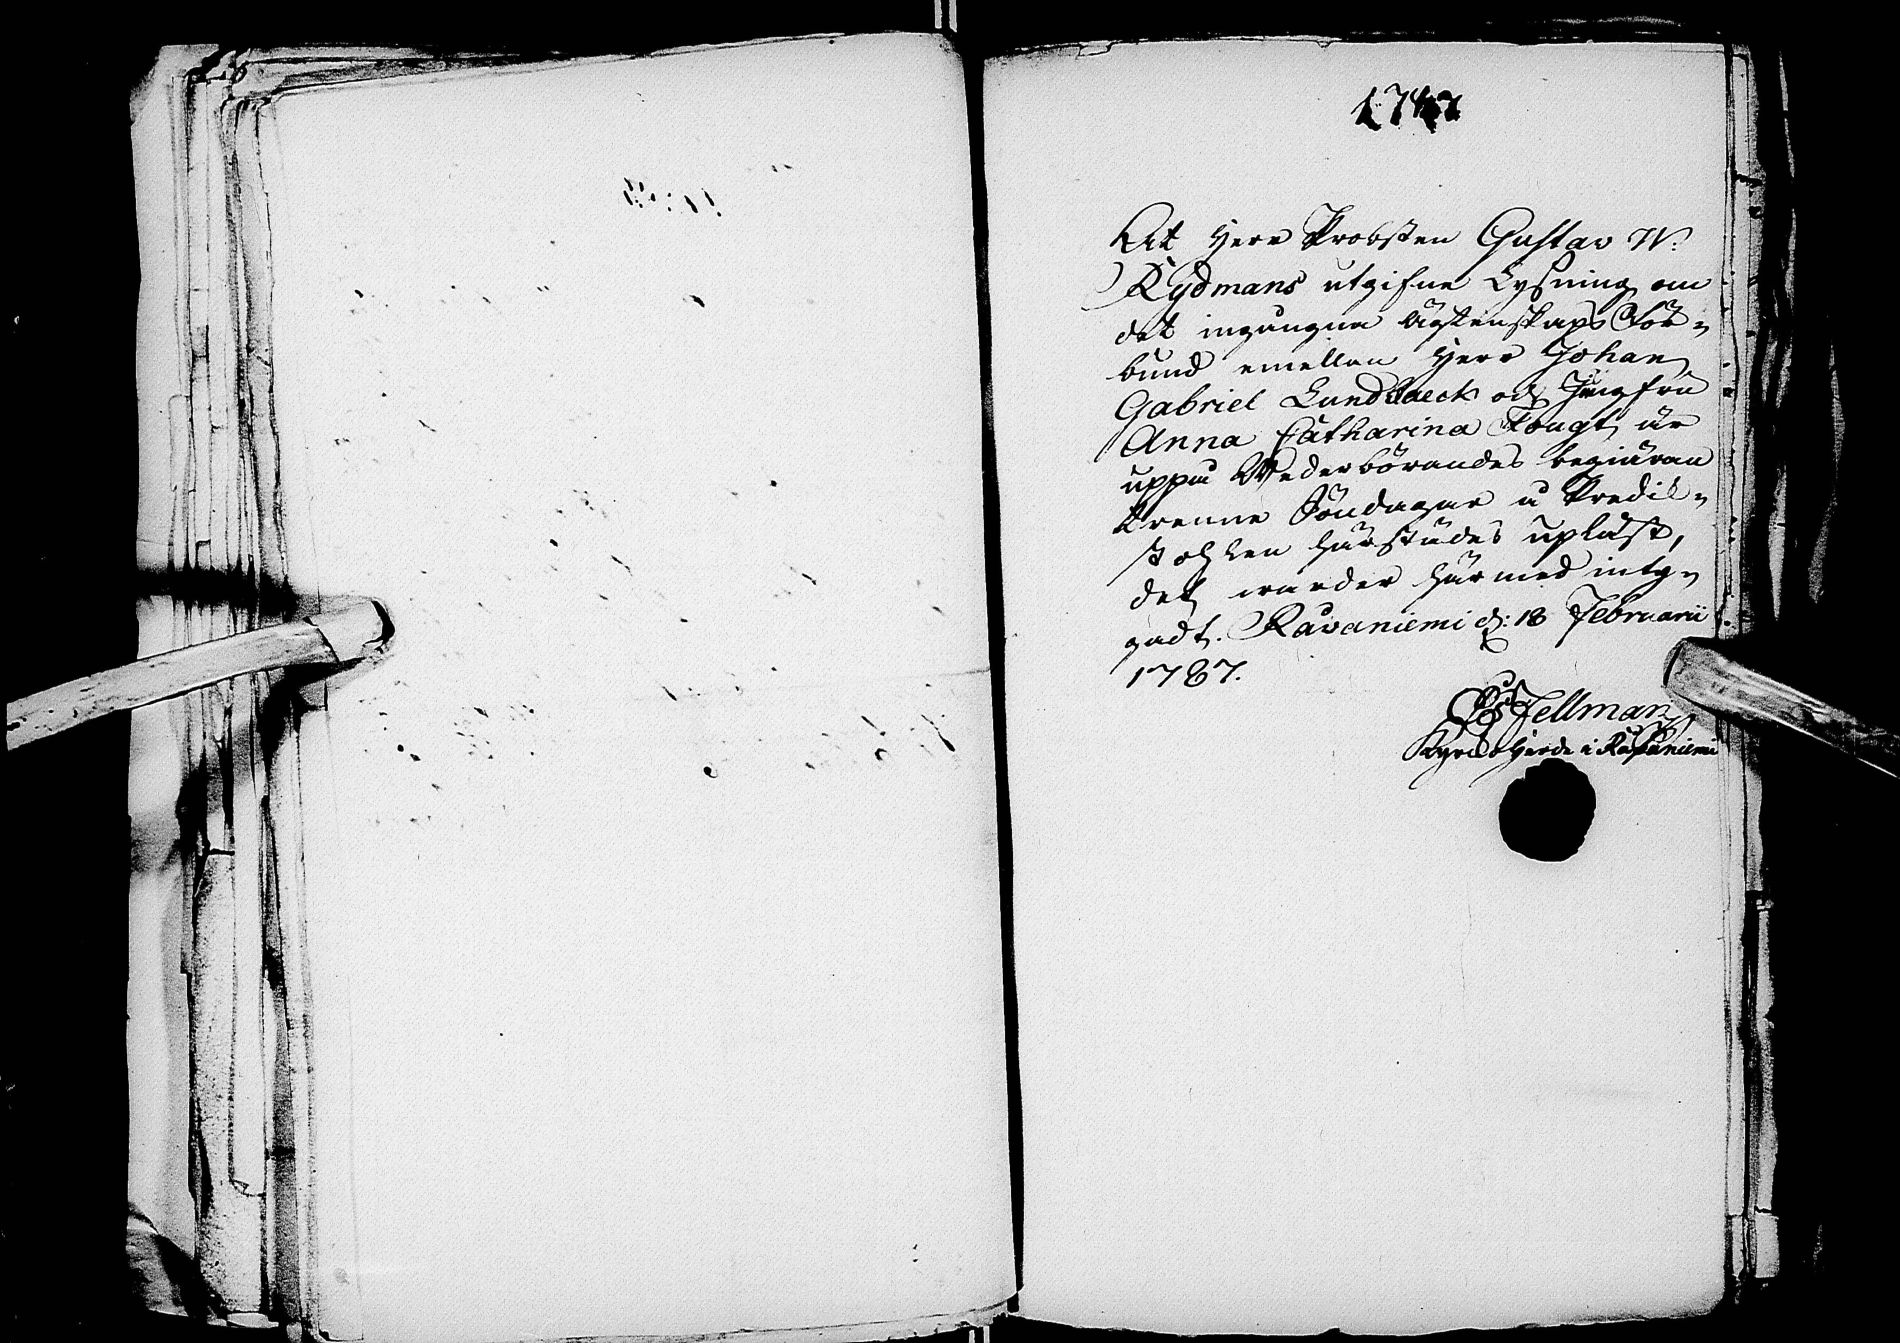 1787
At Herr Probsten Gustav W:
Rydmans utgifne Lysning om
det ingångna ägtenskaps För-
bund emellan Herr Johan
Gabriel Lundbaeck och Jungfru
Anna Catharina Fougt, är
uppå Wederbörandes begiäran
trenne Söndagar å Predik-
stohlen härstädes upläst,
det warder härmed inty-
gadt. Råvaniemi d: 18 Februarii
1787.
Fellman
Kyrckoherde i Råvaniemi